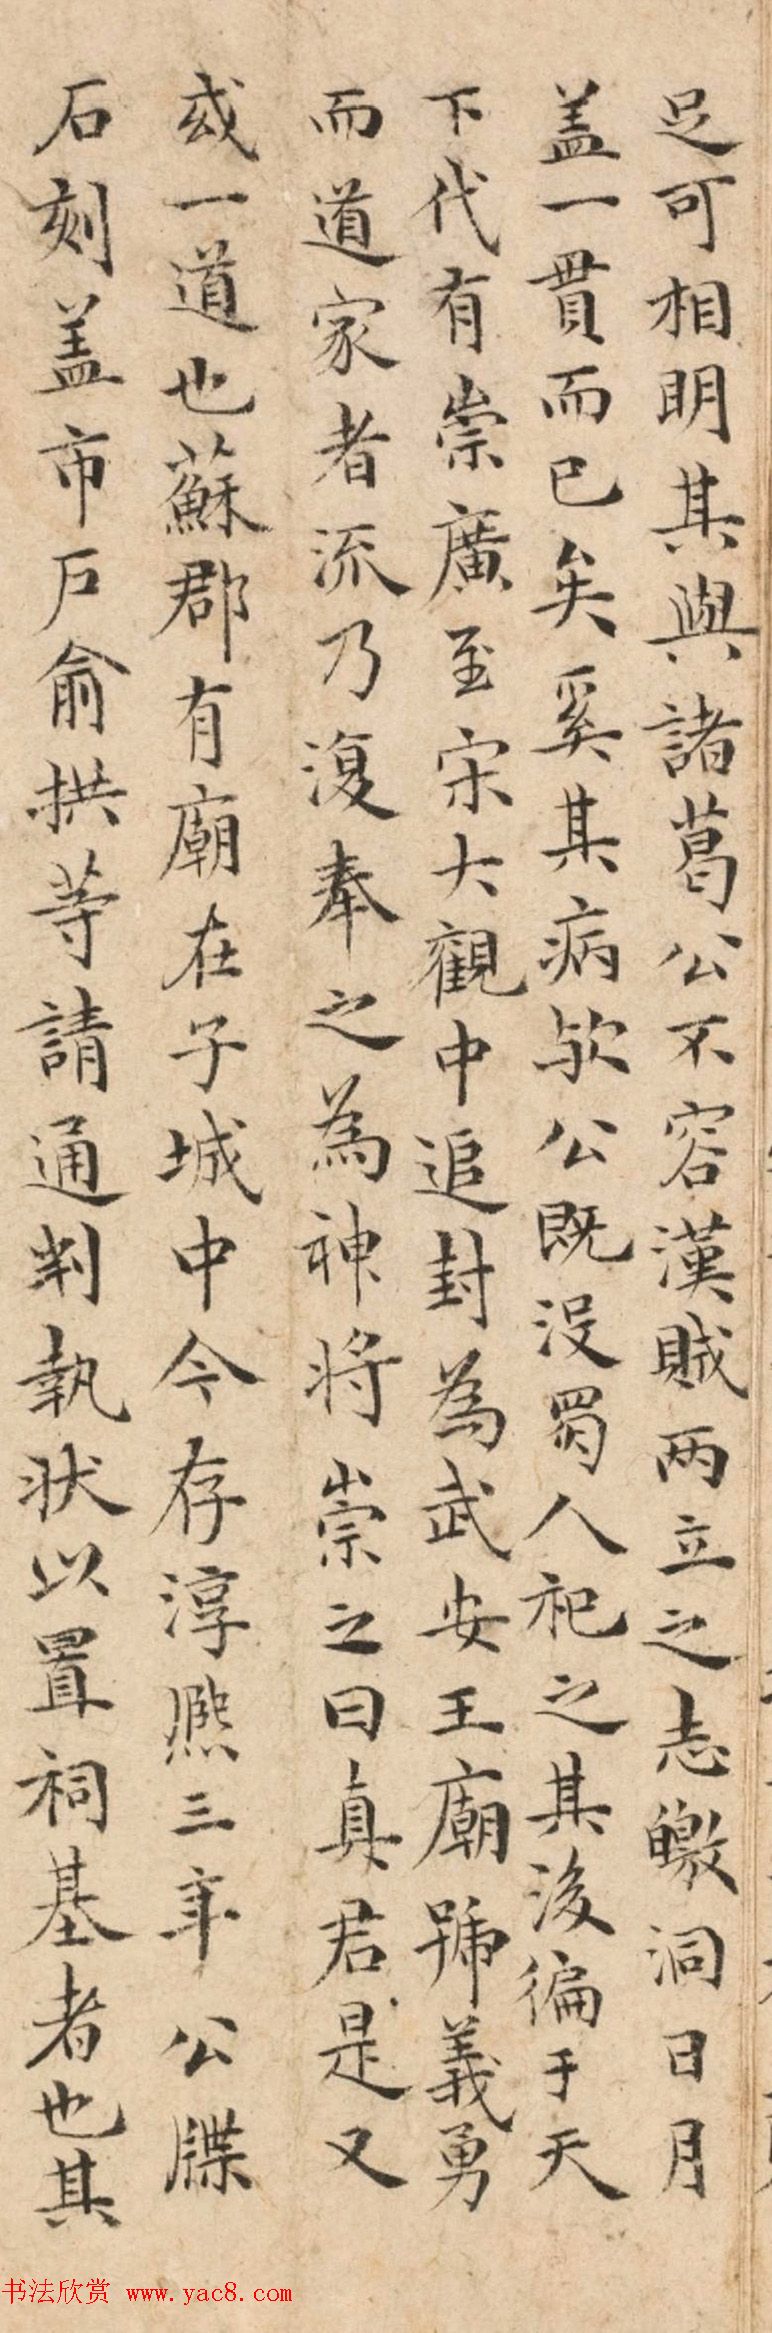 足可相明其與諸葛公不容漢賊兩立之志皦洞日月
盖一貫而已矣奚其病歟公既没蜀人祀之其後徧于天
下代有崇廣至宋大觀中追封為武安王廟號義勇
而道家者流乃復奉之為神將崇之曰真君是又
或一道也蘇郡有廟在子城中今存淳熙三年公牒
石刻盖市戶俞拱等請通判執状以置祠基者也其
书法欣赏 www.yac8.com